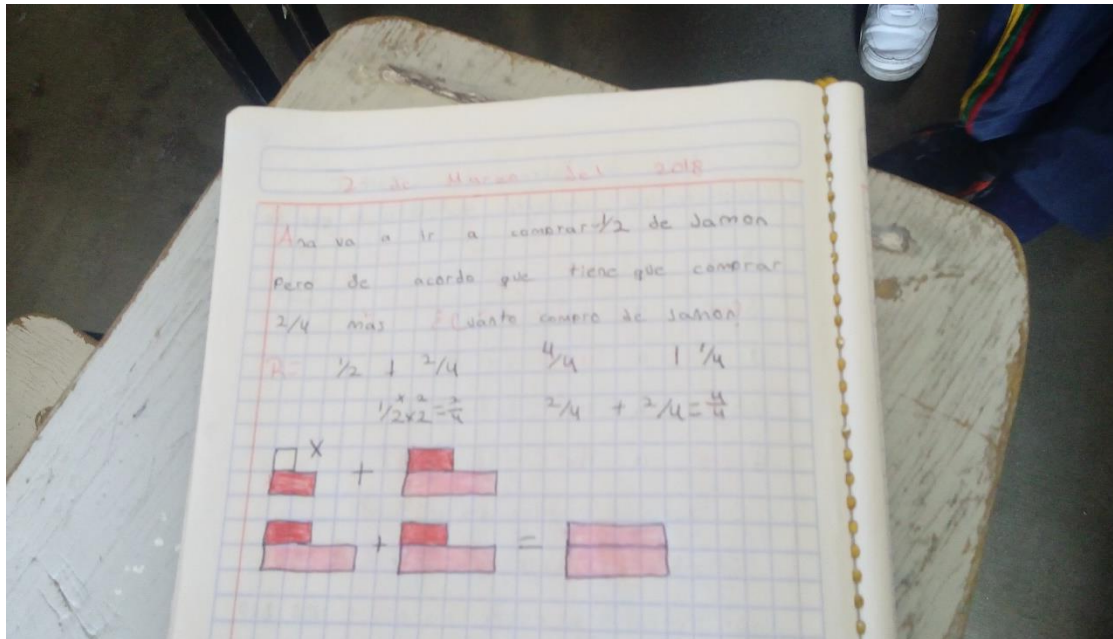 2 de Marzo del 2018
Ana va a ir a comprar 1/2 de Jamon
Pero se acordo que tiene que comprar
2/4 más ¿Cuánto compro de Jamon?
R= 1/2 + 2/4 4/4 1 1/4
1/2 x 2/2 = 2/4 2/4 + 2/4 = 4/4
x +
+ =